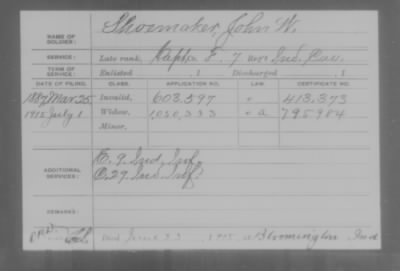 NAME OF SOLDIER: Shoemaker, John W.
SERVICE: Late rank, Capt Co. F. 7 Reg't Ind. Cav.
TERM OF SERVICE: Enlisted , 1 Discharged , 1
DATE OF FILING. CLASS. APPLICATION NO. LAW. CERTIFICATE NO.
1887 Mar. 25 Invalid, 603.597 413.373
1915 July 1 Widow, 1050,333 a 795984
Minor,
ADDITIONAL SERVICES: E. 9. Ind. Inf.
C. 29 Ind Inf.
REMARKS:
Died 1915, at Bloomington Ind